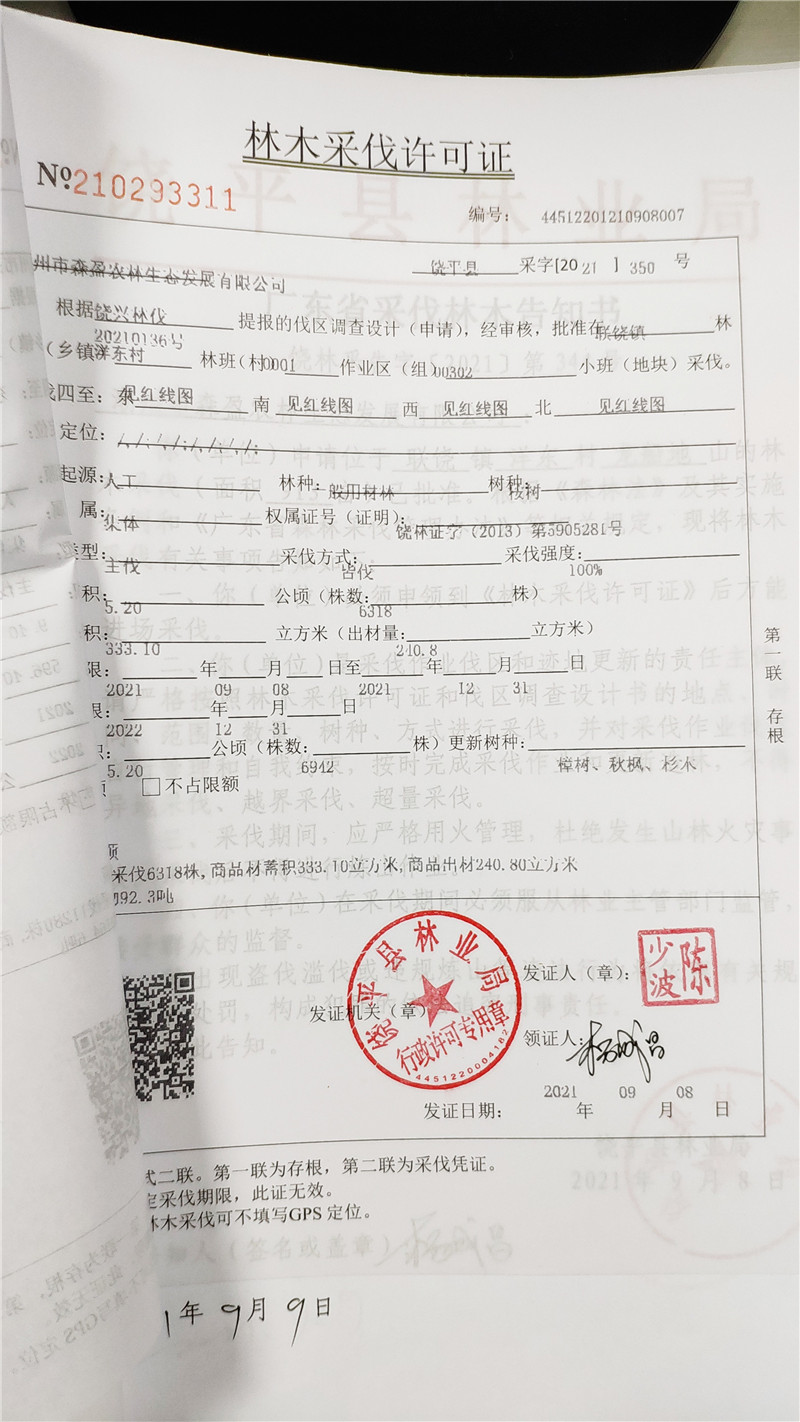 林木采伐许可证
№210293311
编号： 44512201210908007
州市森盈农林生态发展有限公司
饶平县 采字[2021]350 号
根据饶兴林伐20210136号 提报的伐区调查设计（申请），经审核，批准在联饶镇 林
（乡镇）洋东村 林班（村）0001 作业区（组）00302 小班（地块）采伐。
四至：东 见红线图 南 见红线图 西 见红线图 北 见红线图
定位：/./././././././.
起源：人工 林种：一般用材林 树种：桉树
属：集体 权属证号（证明）：饶林证字（2013）第5905281号
类型：主伐 采伐方式：皆伐 采伐强度：100%
积：5.20 公顷（株数：6318 株）
积：333.10 立方米（出材量：240.8 立方米）
限：2021 年 09 月 08 日至 2021 年 12 月 31 日
限：2022 年 12 月 31 日
5.20 公顷（株数：6942 株）更新树种：樟树、秋枫、杉木
□不占限额
采伐6318株,商品材蓄积333.10立方米,商品出材240.80立方米
092.3吨
第一联 存根
饶平县林业局
行政许可专用章
4451220004182
发证机关（章）
发证人（章）：
陈少波
领证人：
发证日期： 2021 年 09 月 08 日
式二联。第一联为存根，第二联为采伐凭证。
定采伐期限，此证无效。
林木采伐可不填写GPS 定位。
1年 9月 9日